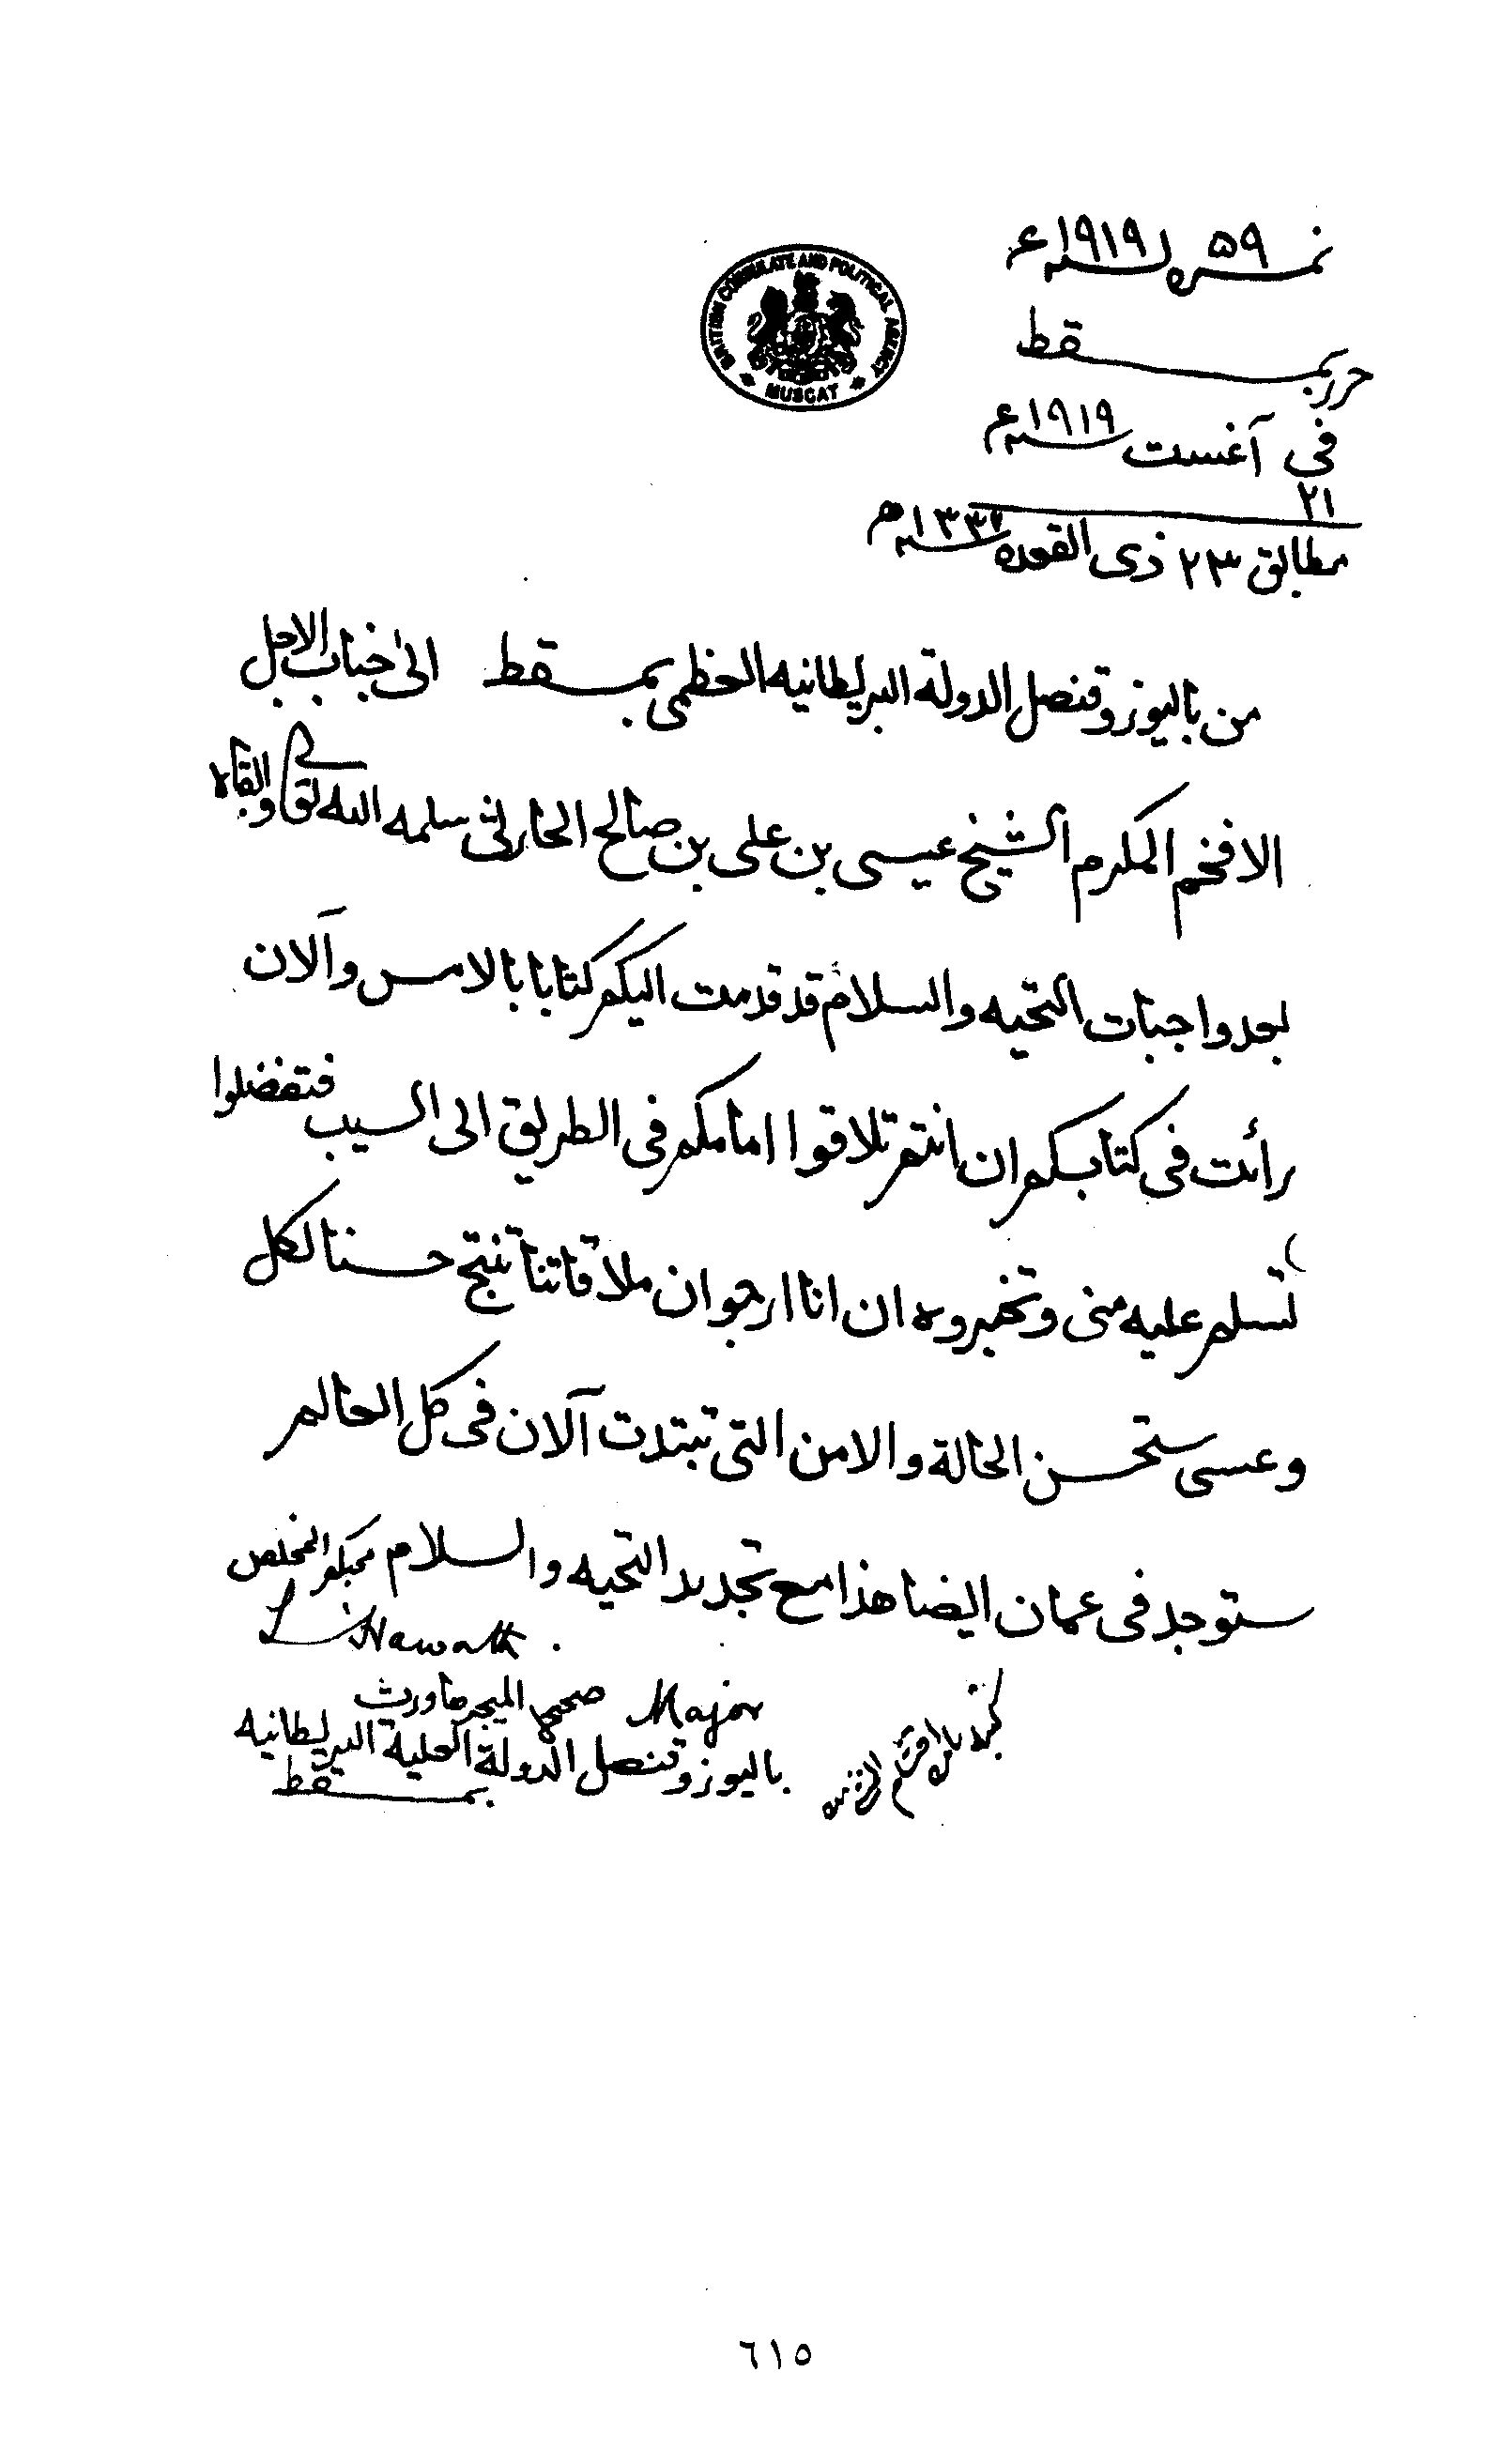 نمره ٥٩ لسنه ١٩١٩ ع
BRITISH CONSULATE AND POLITICAL AGENCY
MUSCAT
حرر بمسقط
فى ٢١ آغست سنه ١٩١٩ ع
مطابق ٢٣ ذى القعده سنه ١٣٣٧ ه
من باليوز وقنصل الدولة البريطانيه العظمى بمسقط الى جناب الاجل
الافخم المكرم الشيخ عيسى بن على بن صالح الحارثى سلمه الله تعالى وابقاه
بعد واجبات التحيه والسلام قد قدمت اليكم كتابا بالامس وآلان
رأئت فى كتابكم ان انتم تلاقوا امامكم فى الطريق الى السيب فتفضلوا
تسلم عليه منى وتخبروه ان انا ارجو ان ملاقاتنا تنتج حسنا لكل
وعسى ستحسن الحالة والامن التى تبتدت آلان فى كل العالم
ستوجد فى عمان ايضا هذا مع تجديد التحيه والسلام محبكم المخلص
Haworth
Major
صحيح الميجر هاورث
باليوز وقنصل الدولة العلية البريطانيه
بمسقط
كتبه بامره
٦١٥